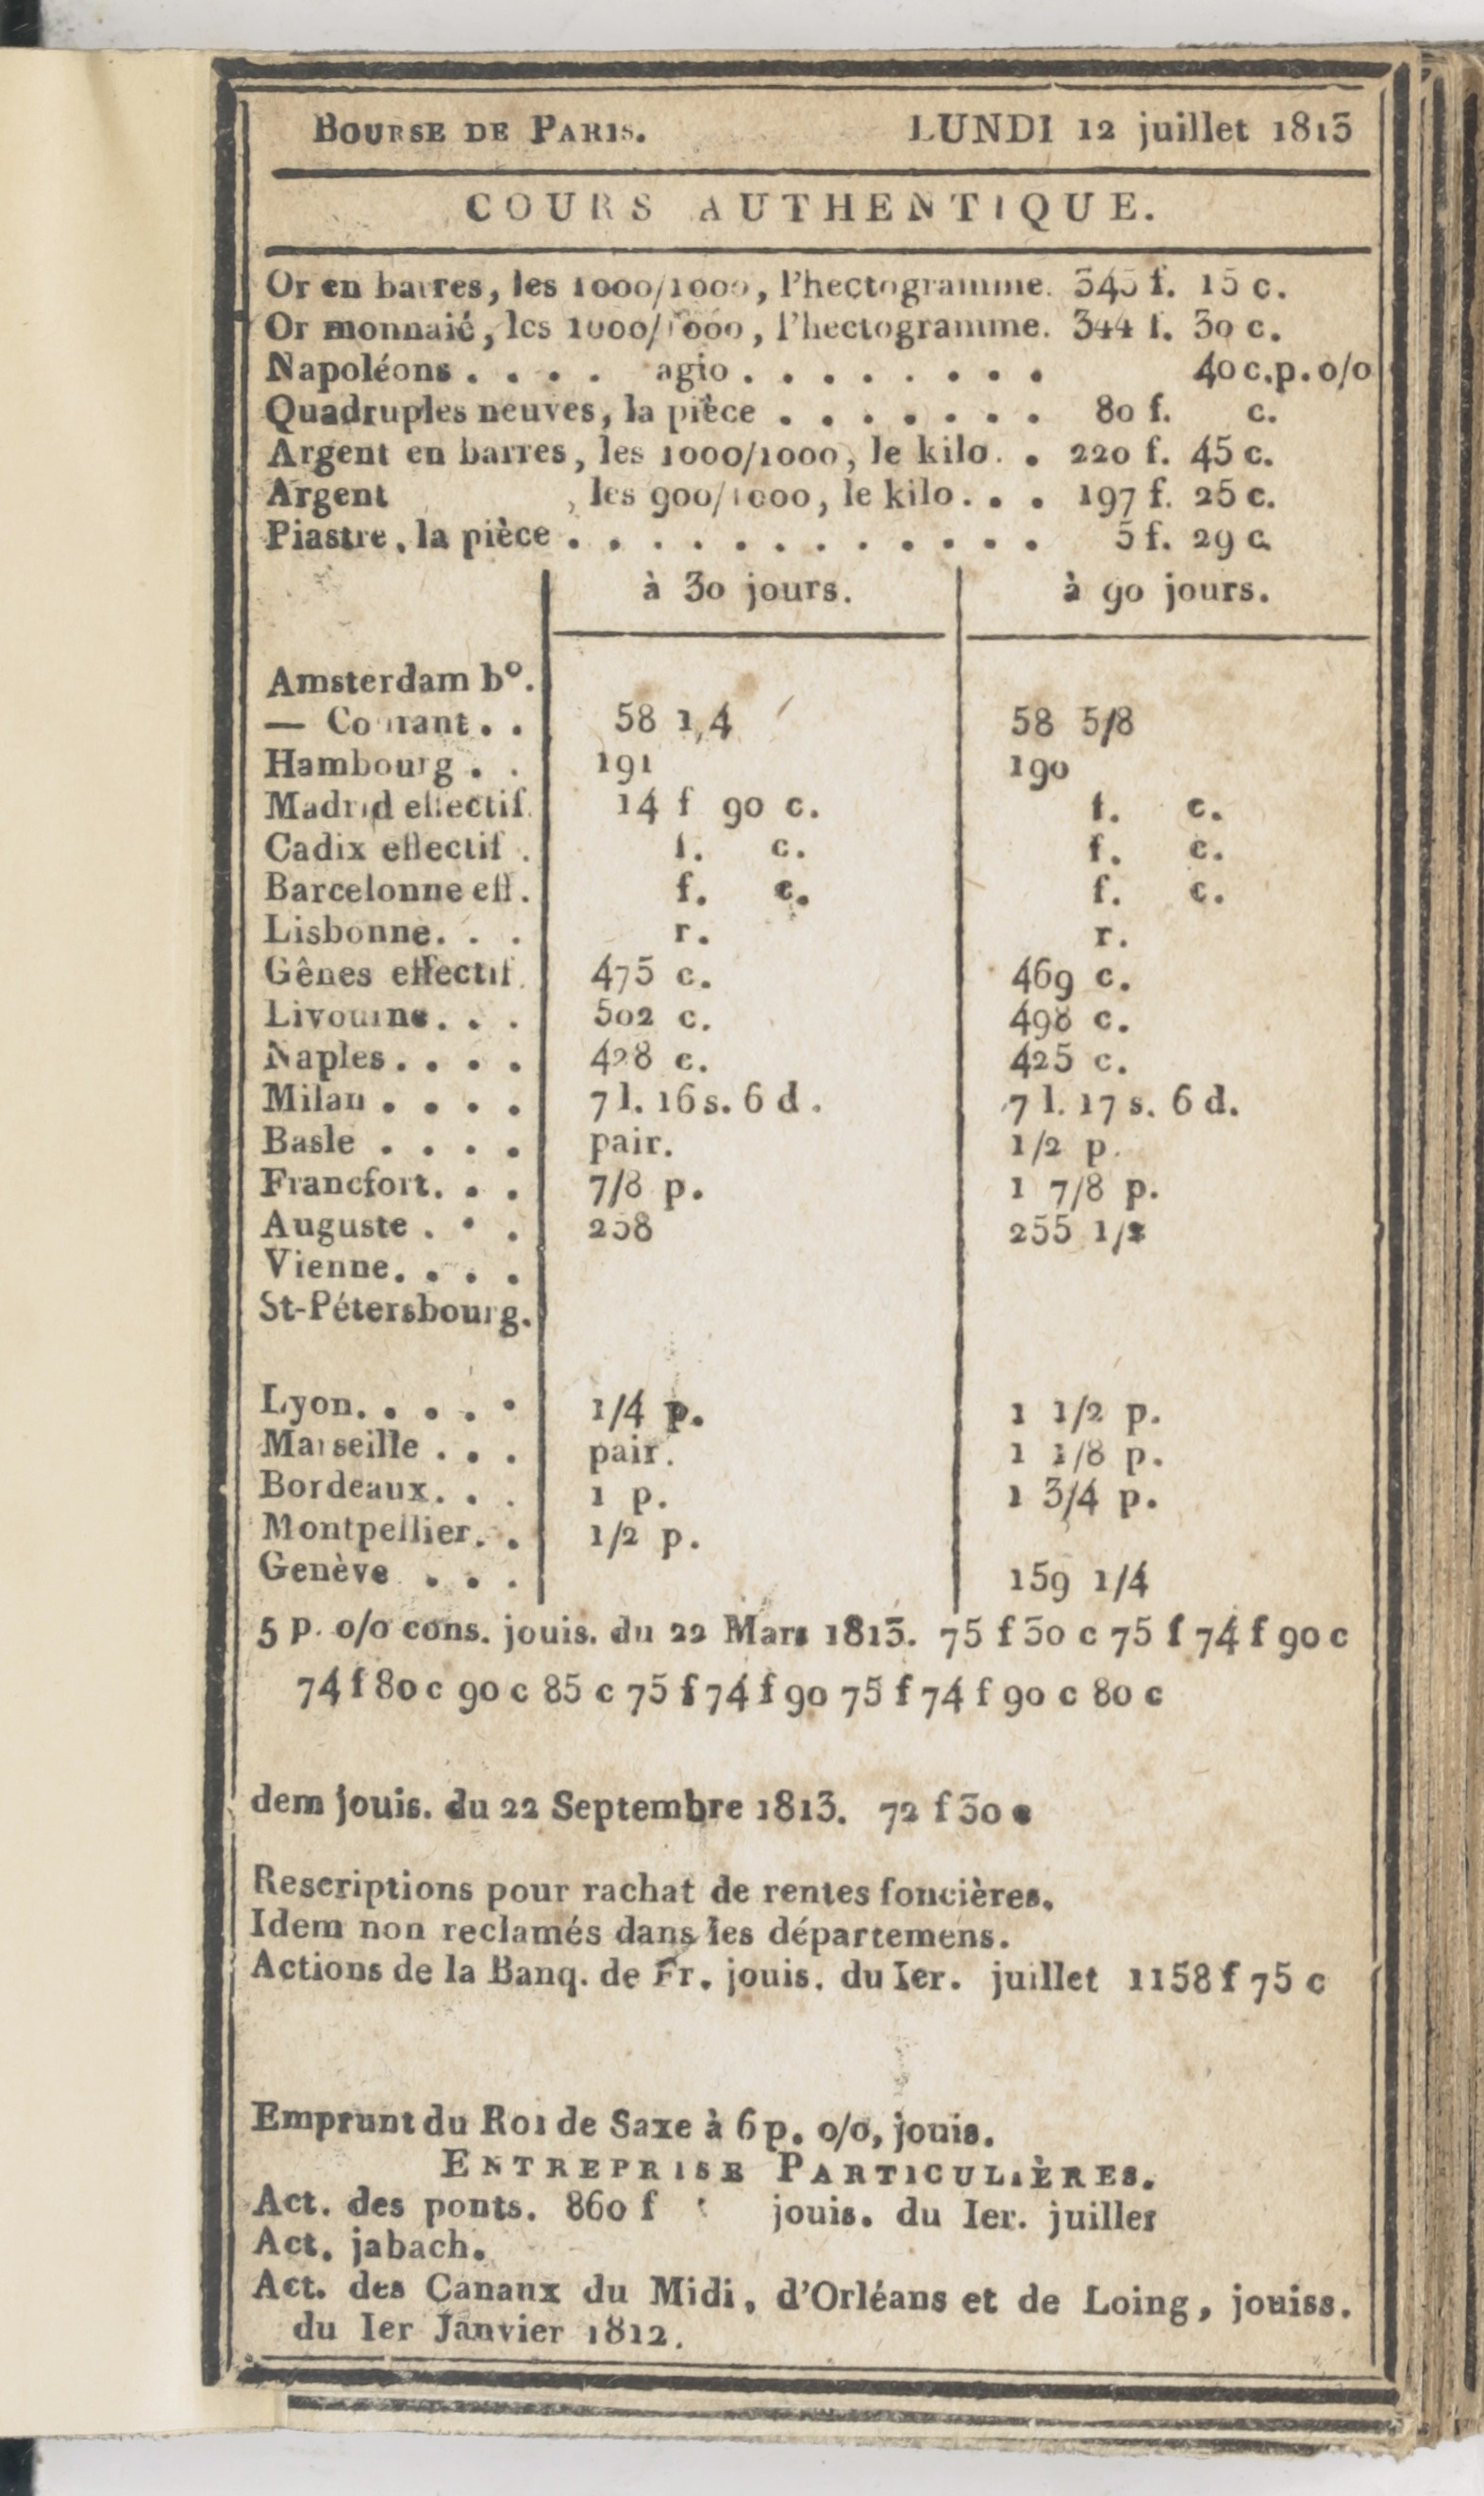 BOURSE DE PARIS. LUNDI 12 juillet 1813
COURS AUTHENTIQUE.
Or en barres, les 1000/1000, l'hectogramme. 343 f. 15 c.
Or monnaié, les 1000/1000, l'hectogramme. 344 f. 30 c.
Napoléons . . . . agio . . . . . . . . 40 c. p. o/o
Quadruples neuves, la pièce . . . . . . . 80 f. c.
Argent en barres, les 1000/1000, le kilo. . 220 f. 45 c.
Argent , les 900/1000, le kilo. . . 197 f. 25 c.
Piastre, la pièce . . . . . . . . . . . . 5 f. 29 c
à 30 jours. à 90 jours.
Amsterdam bº.
— Courant . . 58 1/4 58 5/8
Hambourg . . 191 190
Madrid effectif. 14 f 90 c. f. c.
Cadix effectif . f. c. f. c.
Barcelonne eff. f. c. f. c.
Lisbonne. . . r. r.
Gênes effectif. 475 c. 469 c.
Livourne. . . 502 c. 498 c.
Naples. . . . 428 c. 425 c.
Milan . . . . 7 l. 16 s. 6 d. 7 l. 17 s. 6 d.
Basle . . . . pair. 1/2 p.
Francfort. . . 7/8 p. 1 7/8 p.
Auguste . . . 258 255 1/2
Vienne. . . .
St-Pétersbourg.
Lyon. . . . . 1/4 p. 1 1/2 p.
Marseille . . . pair. 1 1/8 p.
Bordeaux. . . 1 p. 1 3/4 p.
Montpellier. . 1/2 p.
Genève . . . 159 1/4
5 p. o/o cons. jouis. du 22 Mars 1813. 75 f 30 c 75 f 74 f 90 c
74 f 80 c 90 c 85 c 75 f 74 f 90 75 f 74 f 90 c 80 c
dem jouis. du 22 Septembre 1813. 72 f 30 c
Rescriptions pour rachat de rentes foncières.
Idem non reclamés dans les départemens.
Actions de la Banq. de Fr. jouis. du Ier. juillet 1158 f 75 c
Emprunt du Roi de Saxe à 6 p. o/o, jouis.
ENTREPRISE PARTICULIÈRES.
Act. des ponts. 860 f jouis. du Ier. juillet
Act. jabach.
Act. des Canaux du Midi, d'Orléans et de Loing, jouiss.
du Ier Janvier 1812.